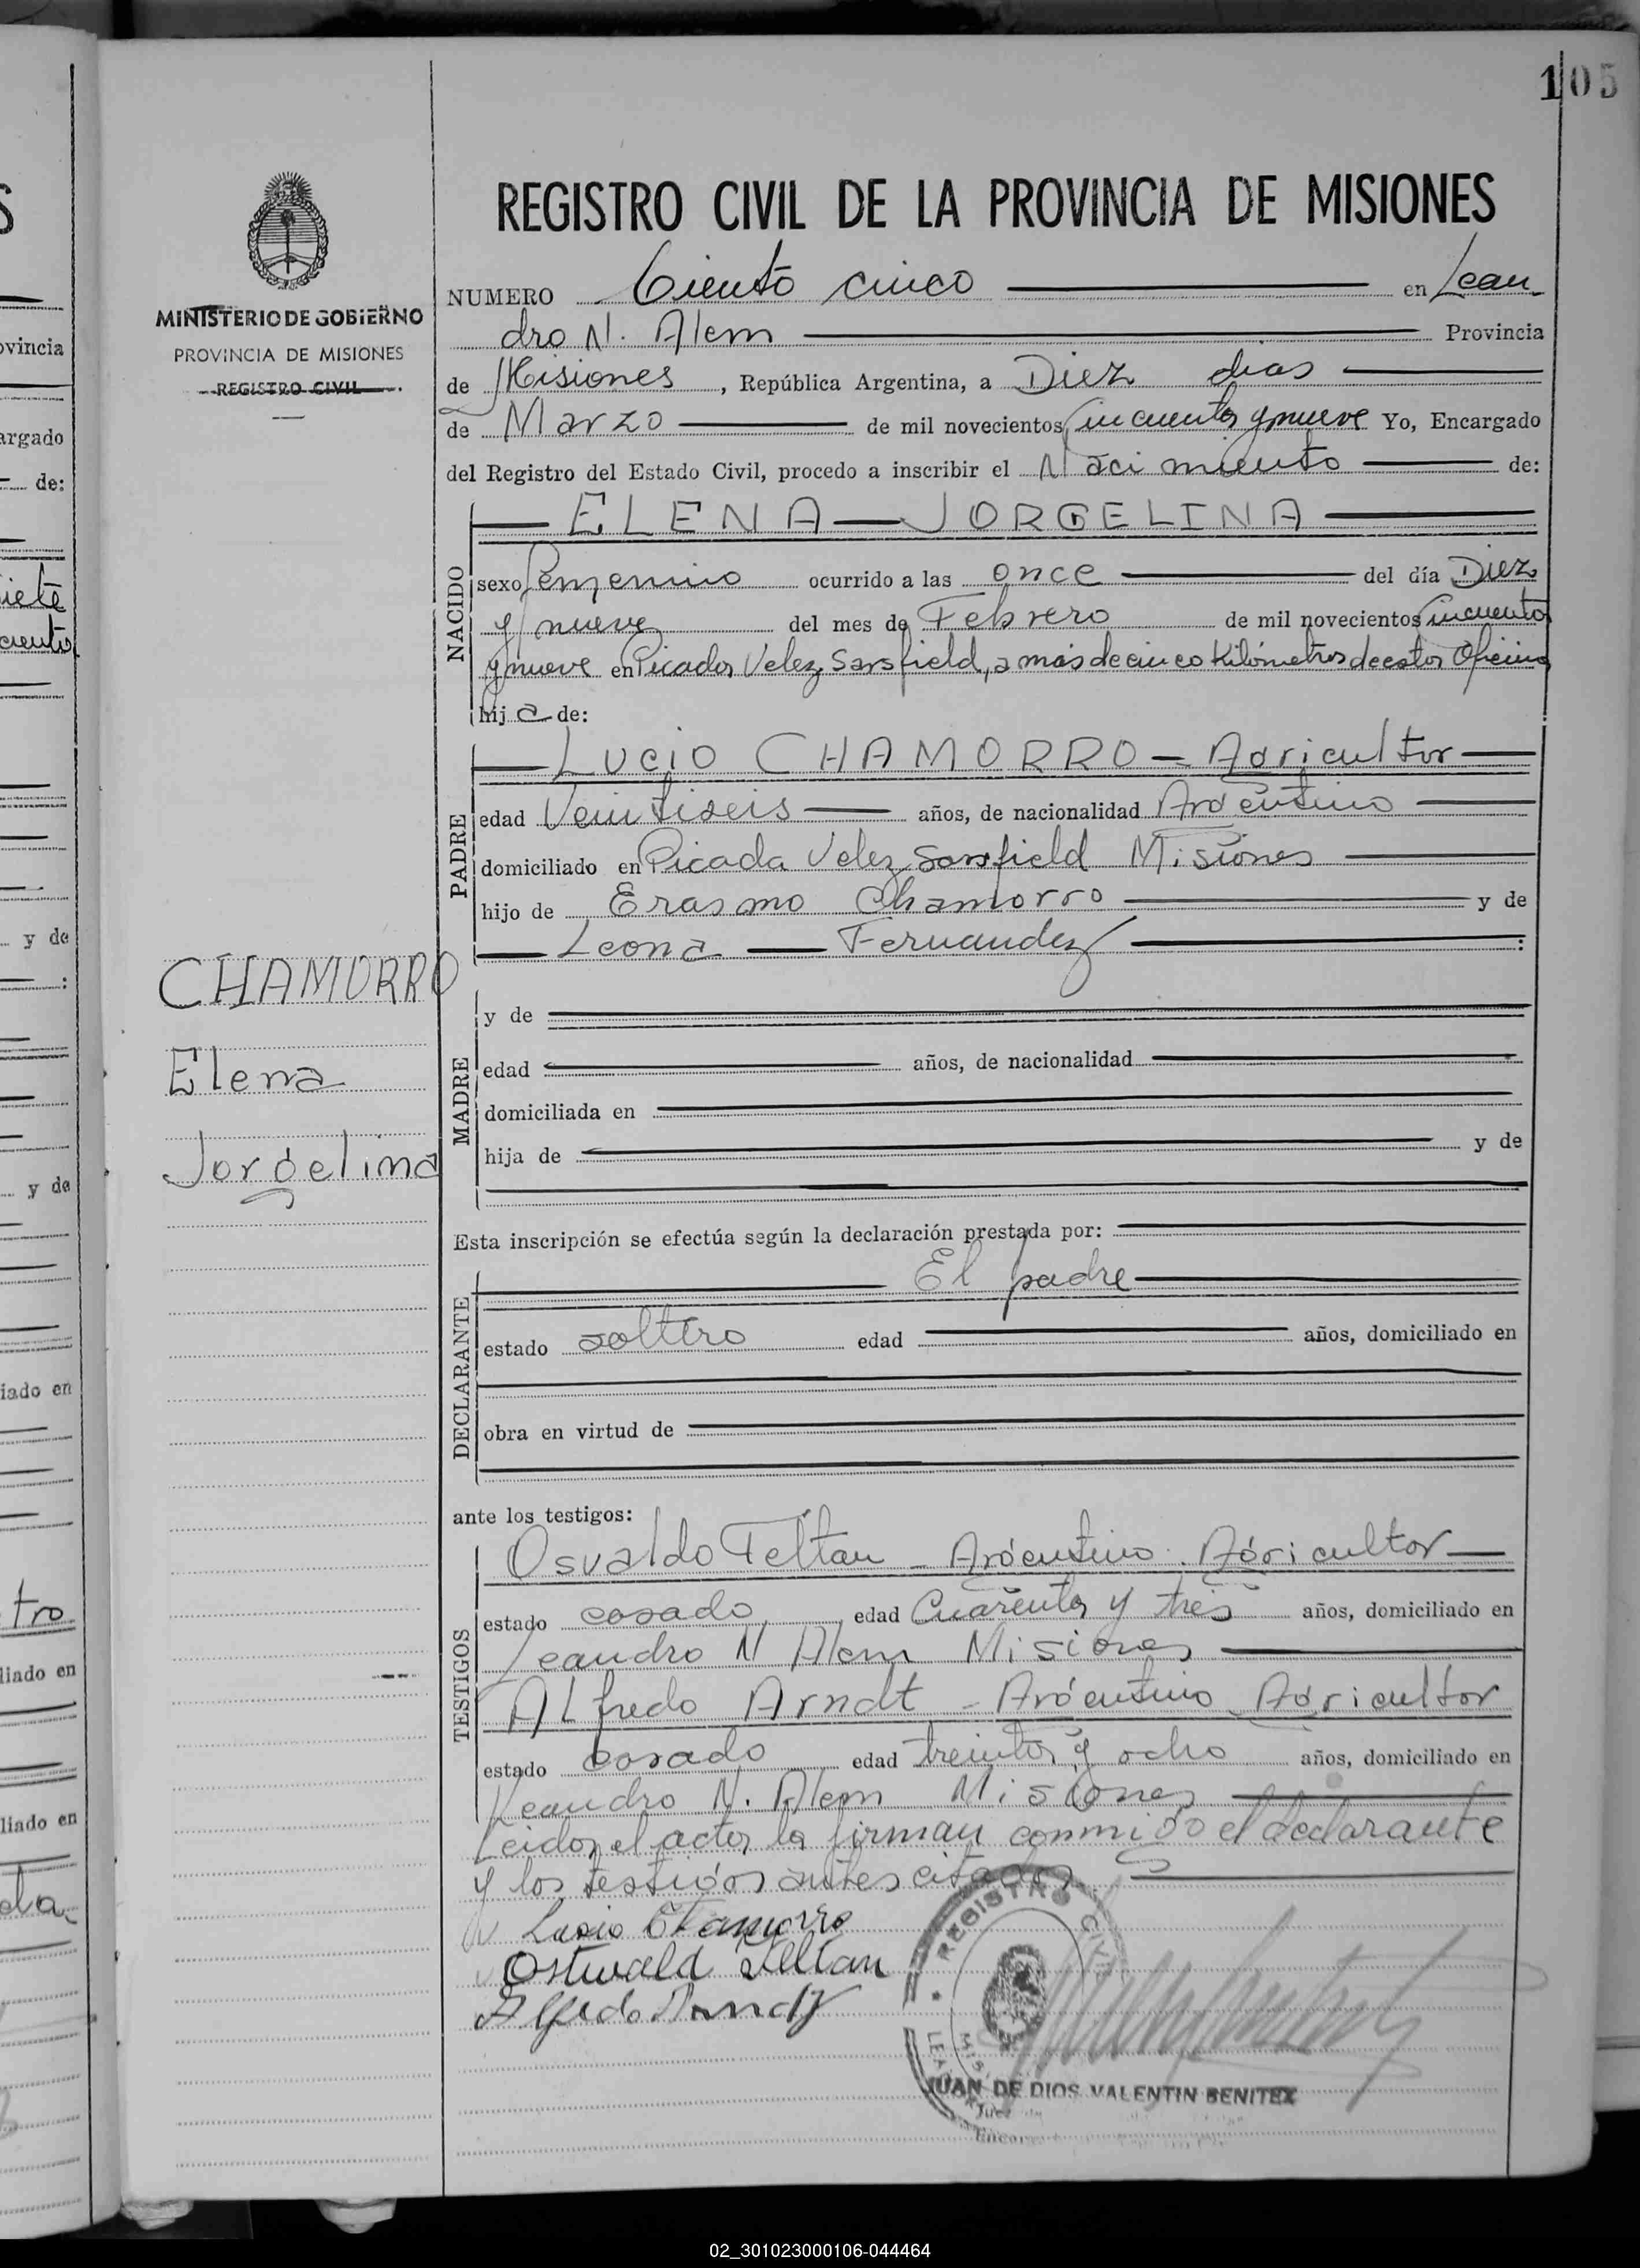 105
MINISTERIO DE GOBIERNO
PROVINCIA DE MISIONES
REGISTRO CIVIL
REGISTRO CIVIL DE LA PROVINCIA DE MISIONES
NUMERO Ciento cinco en Lean
dro N. Alem Provincia
de Misiones, República Argentina, a Diez dias
de Marzo de mil novecientos cincuenta y nueve Yo, Encargado
del Registro del Estado Civil, procedo a inscribir el Nacimiento de:
ELENA JORGELINA
NACIDO
sexo femenino ocurrido a las once del día Diez
y nueve del mes de Febrero de mil novecientos cincuenta
y nueve en Picada Velez Sarsfield, a más de cinco Kilómetros de esta Oficina
hija de:
LUCIO CHAMORRO - Agricultor
PADRE
edad Veintiseis años, de nacionalidad Argentino
domiciliado en Picada Velez Sarsfield Misiones
hijo de Erasmo Chamorro y de
Leona Fernandez :
CHAMORRO
Elena
Jorgelina
MADRE
y de
edad años, de nacionalidad
domiciliada en
hija de y de
Esta inscripción se efectúa según la declaración prestada por:
El padre
DECLARANTE
estado soltero edad años, domiciliado en
obra en virtud de
ante los testigos:
Osvaldo Feltan - Argentino - Agricultor
TESTIGOS
estado casado edad Cuarenta y tres años, domiciliado en
Leandro N Alem Misiones
Alfredo Arndt - Argentino Agricultor
estado casado edad treinta y ocho años, domiciliado en
Leandro N. Alem Misiones
Leida el acta la firman conmigo el declarante
y los testigos antes citados
Lucio Chamorro
Ostwald Feltan
Alfredo Arndt
REGISTRO CIVIL
JUAN DE DIOS VALENTIN BENITEZ
Juez
vincia
argado
de:
iete
cuenta
y de
:
y de
iado en
tro
liado en
liado en
da
02_301023000106-044464